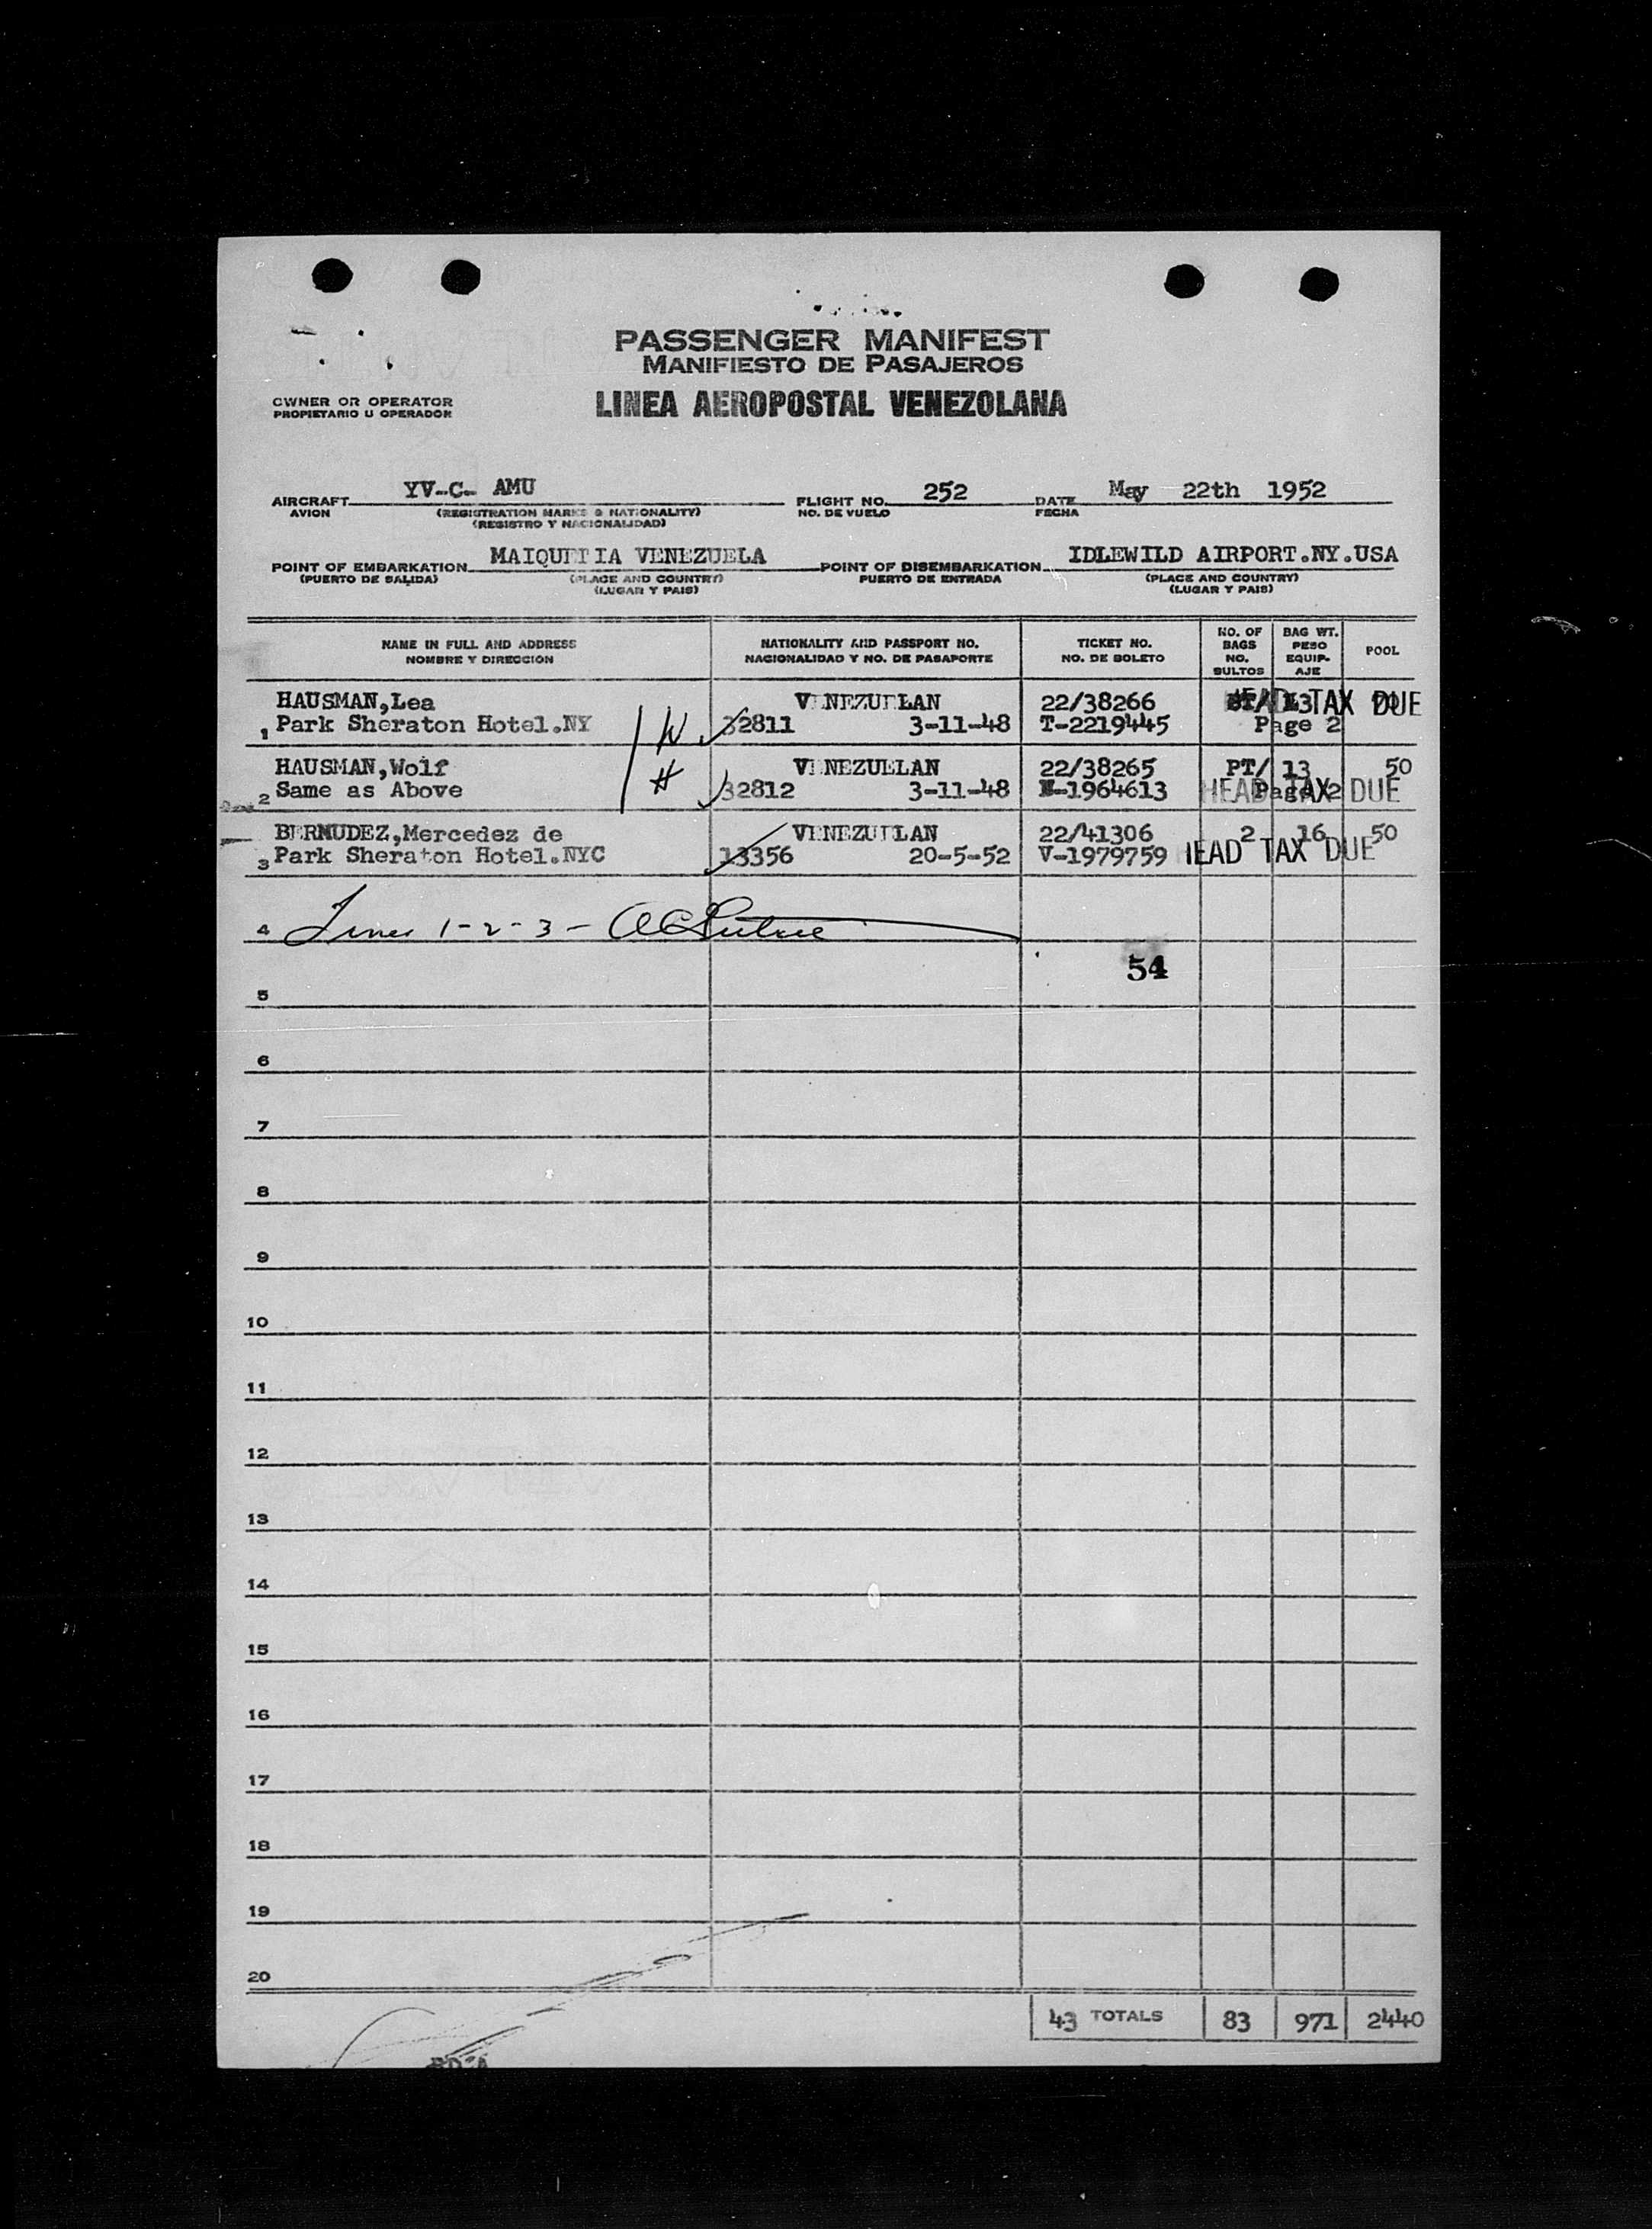 PASSENGER MANIFEST
MANIFIESTO DE PASAJEROS
OWNER OR OPERATOR LINEA AEROPOSTAL VENEZOLANA
PROPIETARIO U OPERADOR
AIRCRAFT YV-C- AMU FLIGHT NO. 252 DATE May 22th 1952
AVION (REGISTRATION MARKS & NATIONALITY) NO. DE VUELO FECHA
(REGISTRO Y NACIONALIDAD)
POINT OF EMBARKATION MAIQUETIA VENEZUELA POINT OF DISEMBARKATION IDLEWILD AIRPORT.NY.USA
(PUERTO DE SALIDA) (PLACE AND COUNTRY) PUERTO DE ENTRADA (PLACE AND COUNTRY)
(LUGAR Y PAIS) (LUGAR Y PAIS)
NAME IN FULL AND ADDRESS NATIONALITY AND PASSPORT NO. TICKET NO. NO. OF BAGS BAG WT. POOL
NOMBRE Y DIRECCION NACIONALIDAD Y NO. DE PASAPORTE NO. DE BOLETO NO. BULTOS PESO EQUIP-AJE
HAUSMAN,Lea VENEZUELAN 22/38266 HEAD TAX DUE
1 Park Sheraton Hotel.NY 32811 3-11-48 T-2219445 Page 2
HAUSMAN,Wolf VENEZUELAN 22/38265 PT/ 13 50
2 Same as Above # 32812 3-11-48 1964613 Page 2 HEAD TAX DUE
BERMUDEZ,Mercedez de VENEZUELAN 22/41306 2 16 50
3 Park Sheraton Hotel.NYC 13356 20-5-52 V-1979759 HEAD TAX DUE
4 Lines 1-2-3-
54
5
6
7
8
9
10
11
12
13
14
15
16
17
18
19
20
43 TOTALS 83 971 2440